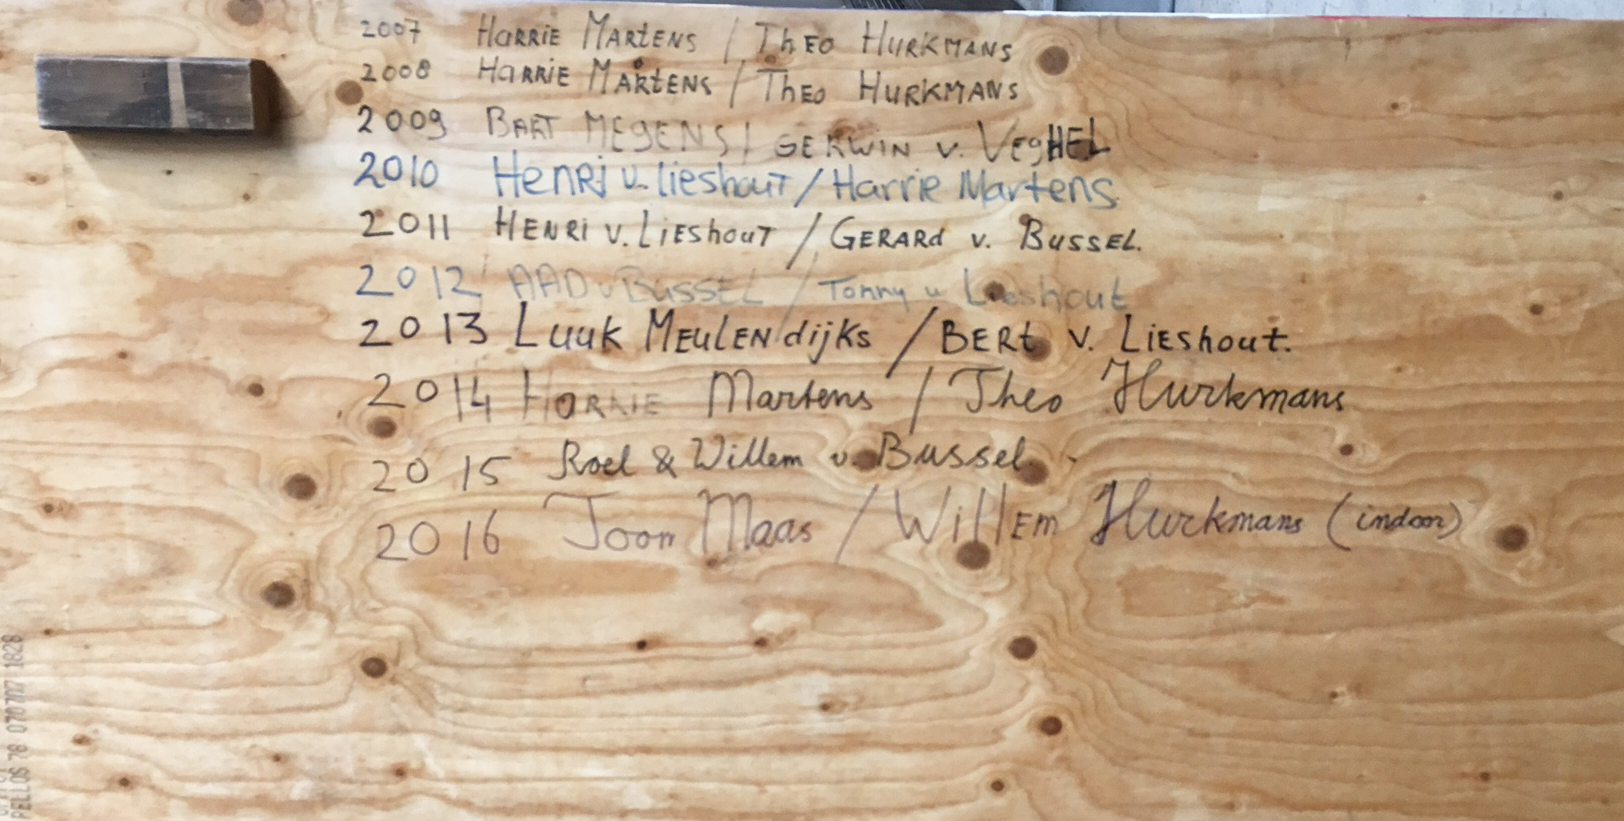 2007 HARRIE MARTENS / THEO HURKMANS
2008 HARRIE MARTENS / THEO HURKMANS
2009 BART MEGENS / GERWIN v. VEGHEL
2010 Henri v. Lieshout / Harrie Martens
2011 HENRI v. LIEShouT / GERARd v. BUSSEL.
2012 AAD v BUSSEL / Tonny v Lieshout
2013 Luuk MEULENdijks / BERt v. LiEShout.
2014 HARRIE Martens / Theo Hurkmans
2015 Roel & Willem v. Bussel.
2016 Toon Maas / Willem Hurkmans (indoor)
PELLOS 78 070707 1828